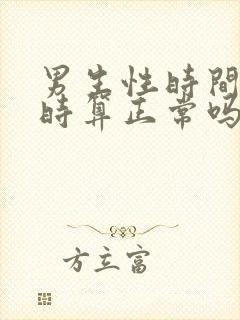 男生性時間
時算正常吗
方立富